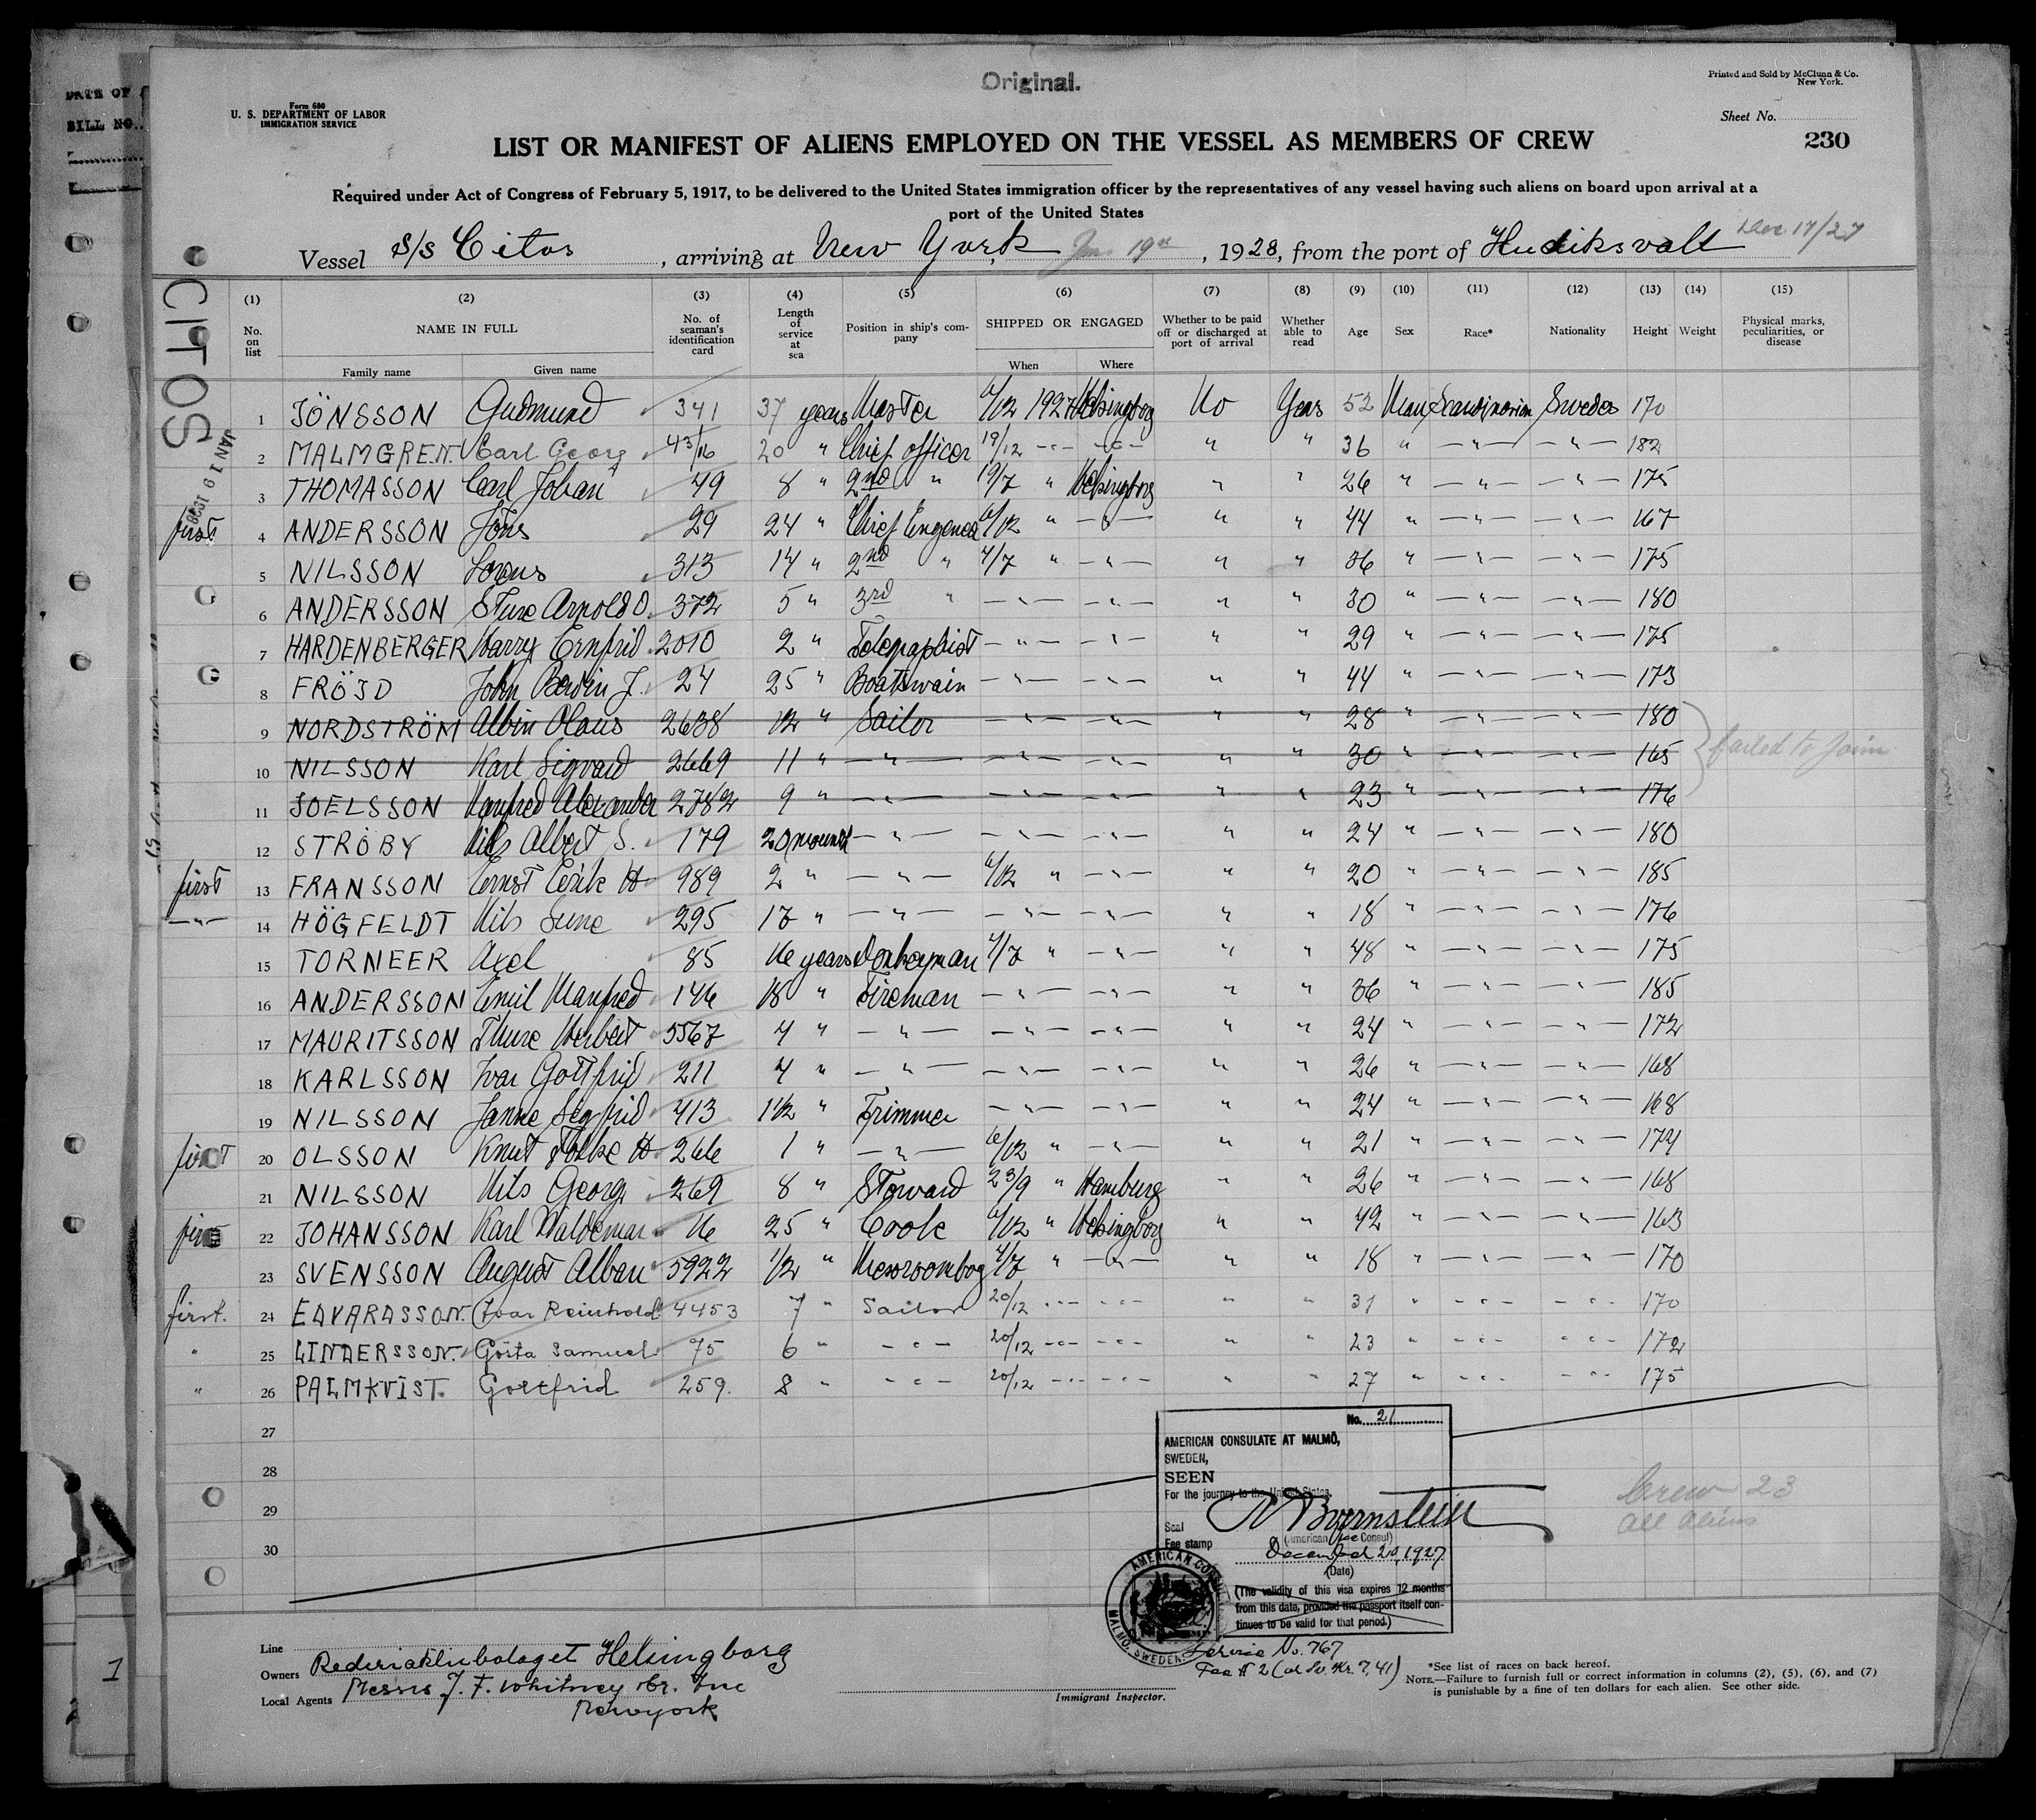 Original.
Printed and Sold by McClunn & Co.
New York.
DATE OF
BILL NO.
Form 680
U. S. DEPARTMENT OF LABOR
IMMIGRATION SERVICE
Sheet No.
LIST OR MANIFEST OF ALIENS EMPLOYED ON THE VESSEL AS MEMBERS OF CREW
230
Required under Act of Congress of February 5, 1917, to be delivered to the United States immigration officer by the representatives of any vessel having such aliens on board upon arrival at a
port of the United States
Dec 17/27
Vessel S/S Citos, arriving at New York, Jan 19th, 1928, from the port of Hudiksvall
CITOS
JAN 19 1928
(1) (2) (3) (4) (5) (6) (7) (8) (9) (10) (11) (12) (13) (14) (15)
No. on list NAME IN FULL No. of seaman's identification card Length of service at sea Position in ship's company SHIPPED OR ENGAGED Whether to be paid off or discharged at port of arrival Whether able to read Age Sex Race* Nationality Height Weight Physical marks, peculiarities, or disease
Family name Given name When Where
1 JÖNSSON Gudmund 341 37 years Master 6/12 1927 Helsingborg No Yes 52 Man Scandinavian Sweden 170
2 MALMGREN. Carl Georg 43/16 20 " Chief officer 19/12 -"- -"- " " 36 " -"- -"- 182
3 THOMASSON Carl Johan 49 8 " 2nd " 19/7 " Helsingborg " " 26 " -"- -"- 175
first 4 ANDERSSON Jöns 29 24 " Chief Engeneer 6/12 " -"- " " 44 " -"- -"- 167
5 NILSSON 313 14 " 2nd " 4/7 " -"- " " 36 " -"- -"- 175
6 ANDERSSON Sture Arnold O. 372 5 " 3rd " -"- -"- " " 30 " -"- -"- 180
7 HARDENBERGER Harry Ernfrid 2010 2 " Telegraphist -"- -"- " " 29 " -"- -"- 175
8 FRÖJD John Edvin J. 24 25 " Boatswain -"- -"- " " 44 " -"- -"- 173
9 NORDSTRÖM Albin Olaus 2638 12 " Sailor -"- -"- " " 28 " -"- -"- 180
10 NILSSON Karl Sigvard 2669 11 " -"- -"- -"- " " 30 " -"- -"- 165
failed to join
11 JOELSSON Manfred Alexander 2782 9 " -"- -"- -"- " " 23 " -"- -"- 176
12 STRÖBY Nils Albert S. 179 20 month -"- -"- -"- " " 24 " -"- -"- 180
first 13 FRANSSON Ernst Erik H 989 2 " -"- 6/12 " -"- " " 20 " -"- -"- 185
-"- 14 HÖGFELDT Nils Sune 295 17 " -"- -"- -"- " " 18 " -"- -"- 176
15 TORNEER Axel 85 16 years Donkeyman 4/7 " -"- " " 48 " -"- -"- 175
16 ANDERSSON Emil Manfred 146 18 " Fireman -"- -"- " " 36 " -"- -"- 185
17 MAURITSSON Thure Herbert 5567 4 " -"- -"- -"- " " 24 " -"- -"- 172
18 KARLSSON Ivar Gottfrid 211 4 " -"- -"- -"- " " 26 " -"- -"- 168
19 NILSSON Janne Sigfrid 413 1 1/2 " Trimmer -"- -"- " " 24 " -"- -"- 168
first 20 OLSSON Knut Folke H 266 1 " -"- 6/12 " -"- " " 21 " -"- -"- 174
21 NILSSON Nils Georg 269 8 " Steward 23/9 " Hamburg " " 26 " -"- -"- 168
first 22 JOHANSSON Karl Waldemar 16 25 " Cook 6/12 " Helsingborg " " 42 " -"- -"- 163
23 SVENSSON August Alban 5922 1/2 " Messroomboy 4/7 " -"- " " 18 " -"- -"- 170
first. 24 EDVARDSSON. Ivar Reinhold 4453 7 " Sailor 20/12 -"- -"- " " 31 " -"- -"- 170
" 25 LINDERSSON. Gösta Samuel 75 6 " -"- 20/12 -"- -"- " " 23 " -"- -"- 172
" 26 PALMKVIST. Gottfrid 259. 8 " -"- 20/12 -"- -"- " " 27 " -"- -"- 175
27
28
29
30
No. 21
AMERICAN CONSULATE AT MALMÖ,
SWEDEN,
SEEN
For the journey to the United States.
Bernstein
Seal
(American Vice Consul)
Fee stamp
December 20, 1927
(Date)
(The validity of this visa expires 12 months
from this date, provided the passport itself con-
tinues to be valid for that period.)
AMERICAN CONSULATE MALMÖ, SWEDEN
Service No. 767
Fee $ 2 (at Sv. Kr. 7,41)
Crew 23
all aliens
Line
Owners Rederiaktiebolaget Helsingborg
Local Agents Messrs J. F. Whitney Co. Inc
Newyork
Immigrant Inspector.
*See list of races on back hereof.
NOTE.—Failure to furnish full or correct information in columns (2), (5), (6), and (7)
is punishable by a fine of ten dollars for each alien. See other side.
1